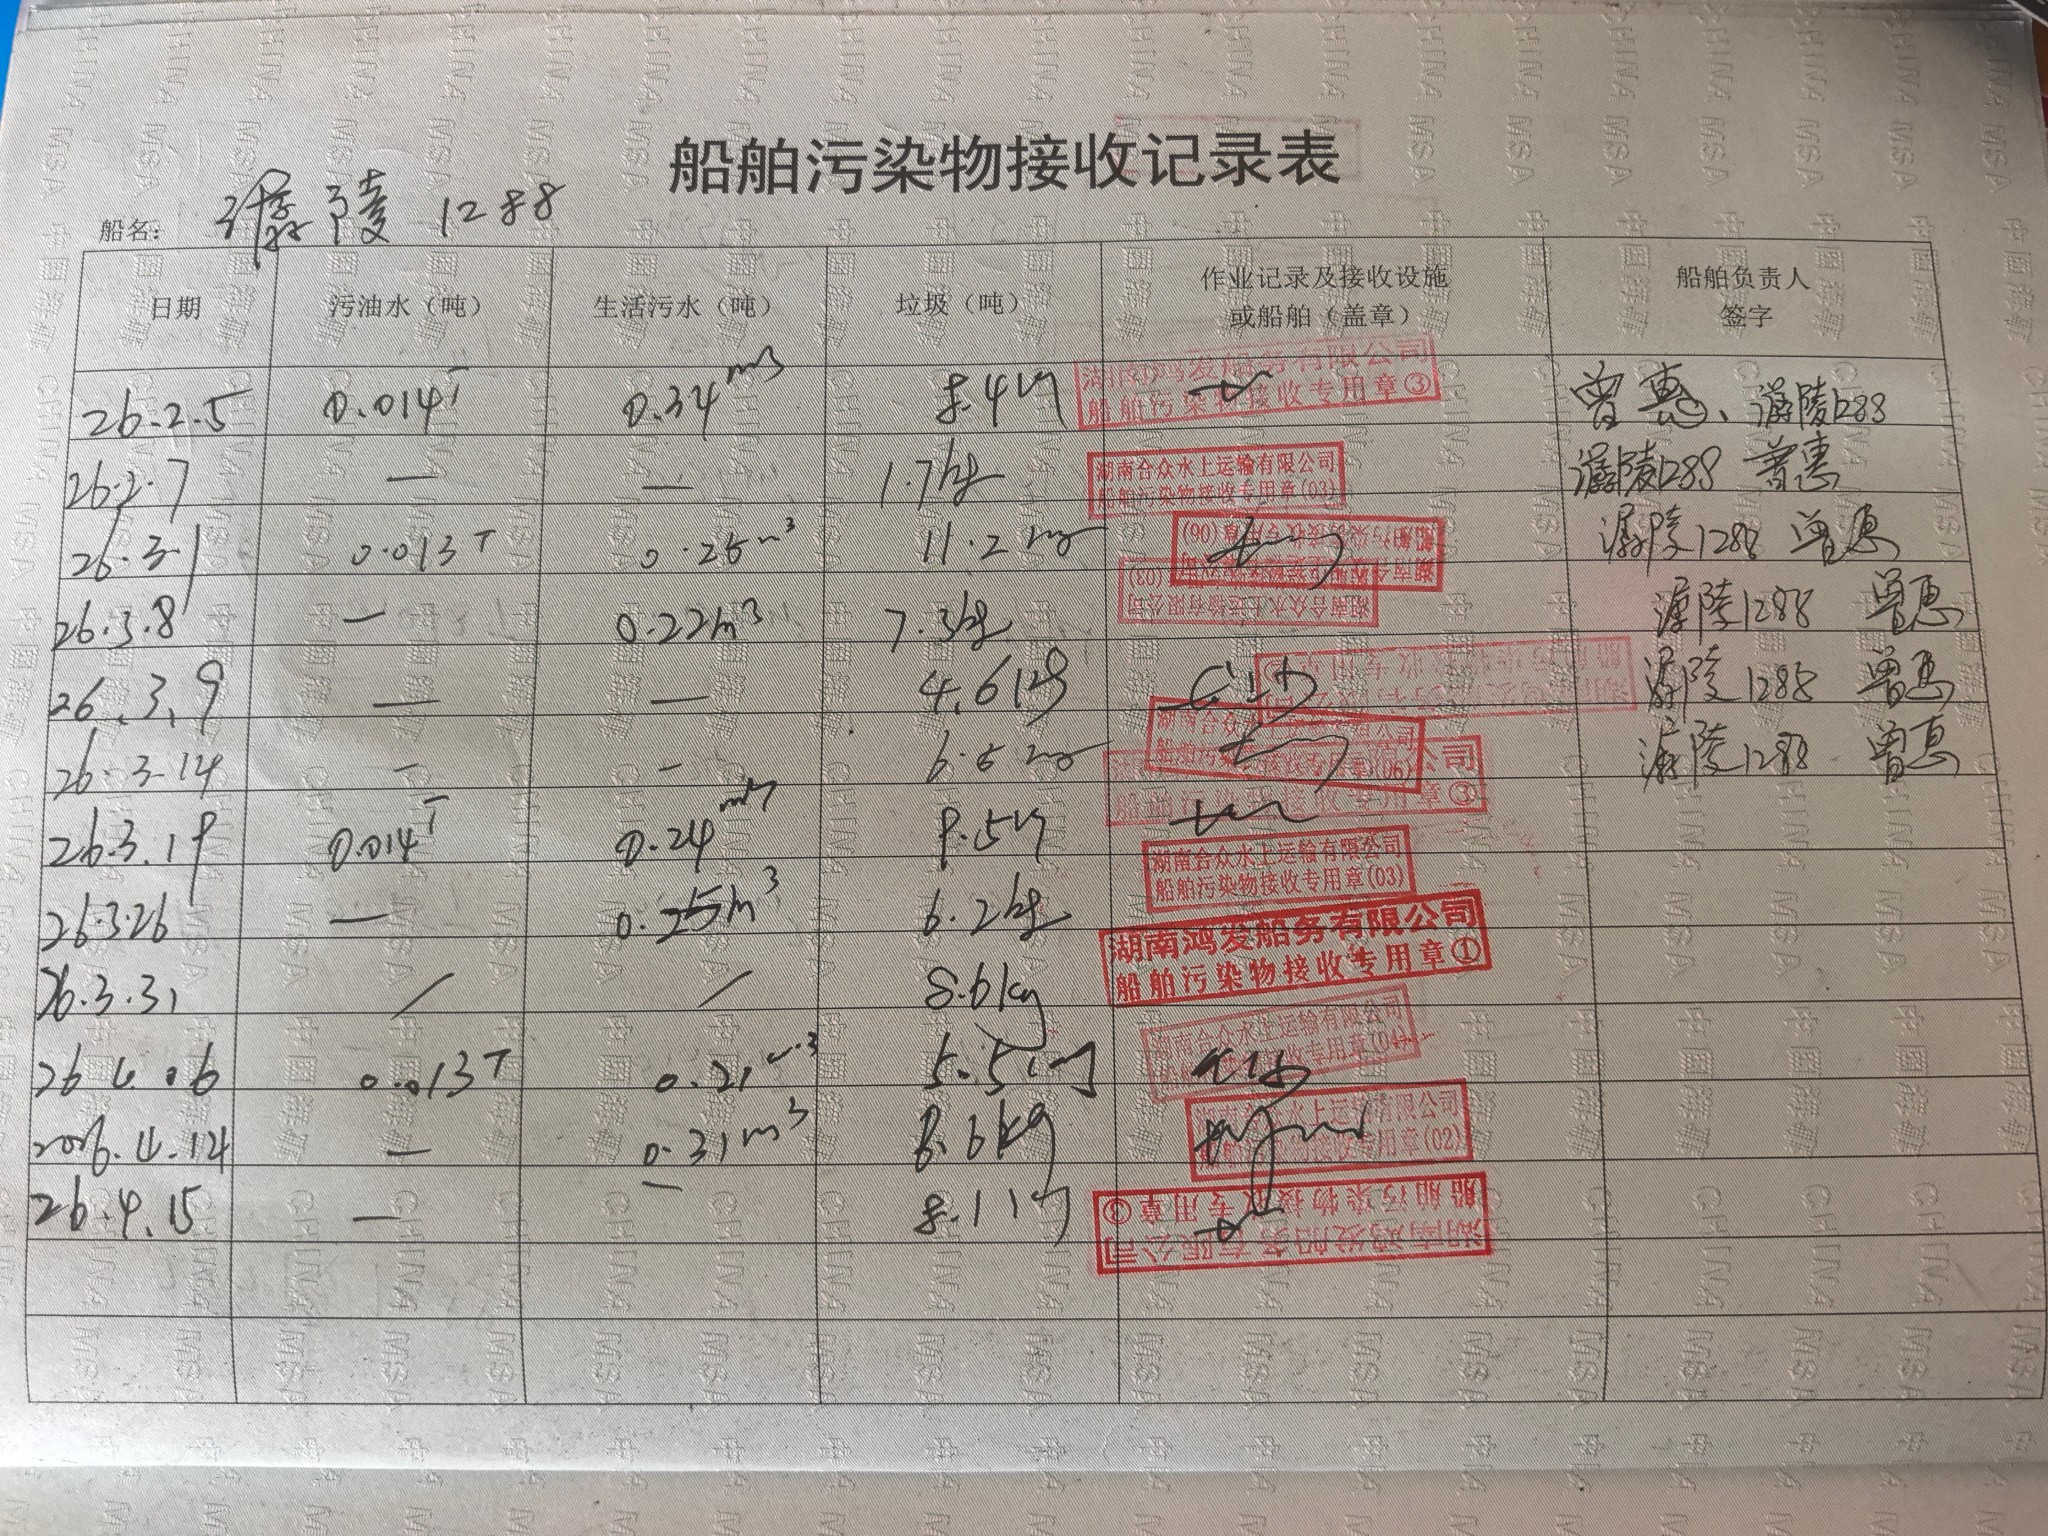 船舶污染物接收记录表
船名： 潺陵 1288
日期 污油水（吨） 生活污水（吨） 垃圾（吨） 作业记录及接收设施或船舶（盖章） 船舶负责人签字
26.2.5 0.014T 0.34m3 8.4kg 湖南鸿发船务有限公司 船舶污染物接收专用章③ 曾惠、潺陵1288
26.2.7 — — 1.7kg 湖南合众水上运输有限公司 船舶污染物接收专用章(03) 潺陵1288 曾惠
26.3.1 0.013T 0.25m3 11.2kg 船舶污染物接收专用章(06) 潺陵1288 曾惠
26.3.8 — 0.22m3 7.3kg 湖南合众水上运输有限公司 (03) 潺陵1288 曾惠
26.3.9 — — 4.6kg 潺陵1288 曾惠
26.3.14 — — 6.6kg 湖南合众 有限公司 船舶污染 (06) 潺陵1288 曾惠
26.3.19 0.014T 0.24m3 8.5kg 公司 船舶污染物接收专用章③
26.3.26 — 0.25m3 6.2kg 湖南合众水上运输有限公司 船舶污染物接收专用章(03)
26.3.31 / / 8.6kg 湖南鸿发船务有限公司 船舶污染物接收专用章①
26.4.06 0.013T 0.21m3 5.5kg 湖南合众水上运输有限公司 接收专用章(04)
2026.4.14 — 0.31m3 8.6kg 湖南合众水上运输有限公司 船舶污染物接收专用章(02)
26.4.15 — — 8.1kg 湖南鸿发船务有限公司 船舶污染物接收专用章③